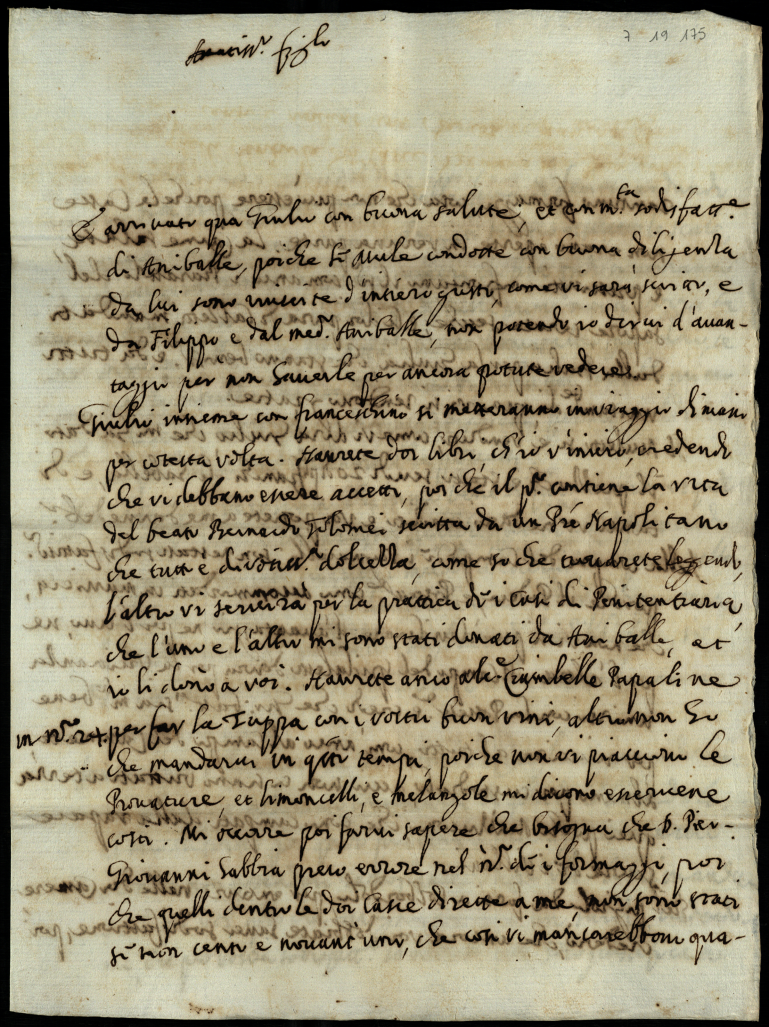 7 19 175
Amatiss.º figlo
È arrivato qua Giulio con buona salute, et con m.ta sodisfatt.e
di Aniballe, poiche le Mule condotte con buona diligenza
da lui sono riuscite d'intiero gusto, come vi sarà scritto, e
da Filippo e dal med.º Aniballe, non potendo io dirvi d'avan-
taggio per non haverle per ancora potute vedere.
Giulio insieme con franceschino si metteranno in viaggio dimani
per cotesta volta. Haverete doi libri, ch'io v'invio, credendo
che vi debbano essere accetti, poiche il p.º contiene la vita
del beato Bernardo Tolomei scritta da un Pré Napolitano
che tutto è di dolcezza, come so che trovarete leggendo,
l'altro vi servirà per la prattica di i casi di Penitentiaria,
che l'uno e l'altro mi sono stati donati da Aniballe, et
io li dono a voi. Haverete anco alc.e Ciambelle Papaline
in n.º 24 per far la Zuppa con i vostri buon vini, altro non ho
che mandarvi in q̃sti tempi, poiche non vi piacciono le
Provature, et limoncelli, e melangole mi dicono esservene
costì. Mi occorre poi farvi sapere che bisogna che D. Pier-
Giovanni habbia preso errore nel n.º di i formaggi, poi
che quelli dentro le doi Casse dirette a me, non sono stati
se non cento e novant'uno, che così vi mancarebbono qua-